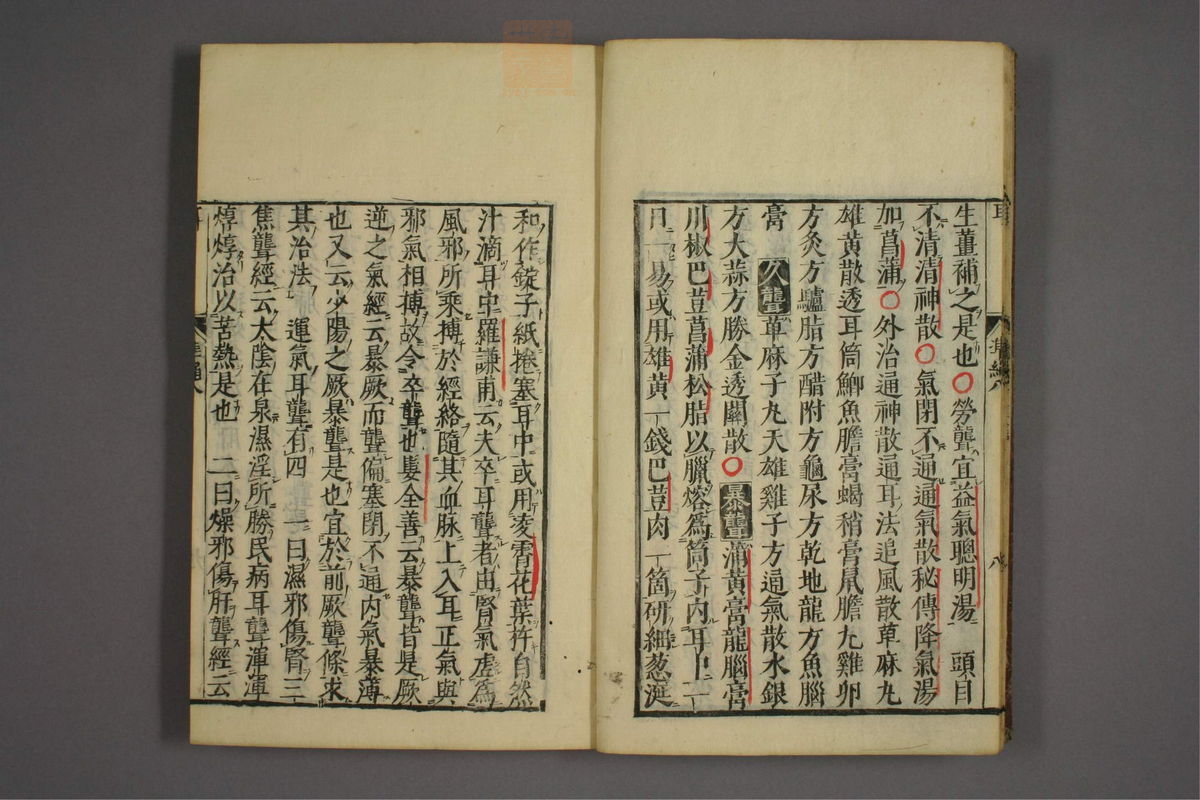 生薑補之是也○勞聾宜益氣聰明湯　頭目
不清清神散○氣閉不通通氣散秘傳降氣湯
加菖蒲○外治通神散通耳法追風散萆麻丸
雄黃散透耳筒鯽魚膽膏蝎稍膏鼠膽丸雞卵
方灸方驢脂方醋附方龜尿方乾地龍方魚腦
膏　久聾萆麻子丸天雄雞子方通氣散水銀
方大蒜方勝金透關散○暴聾蒲黃膏龍腦膏
川椒巴荳菖蒲松脂以臘熔爲筒子內耳中一
日一易或用雄黃一錢巴荳肉一箇研細葱涎
和作錠子紙捲塞耳中或用凌霄花葉杵自然
汁滴耳中羅謙甫云夫卒耳聾者出腎氣虛爲
風邪所乘搏於經絡隨其血脉上入耳正氣與
邪氣相搏故令卒聾也婁全善云暴聾皆是厥
逆之氣經云暴厥而聾偏塞閉不通內氣暴薄
也又云少陽之厥暴聾是也宜於前厥聾條求
其治法　運氣耳聾有四　一曰濕邪傷腎三
焦聾經云太陰在泉濕淫所勝民病耳聾渾渾
焞焞治以苦熱是也　二曰燥邪傷肝聾經云